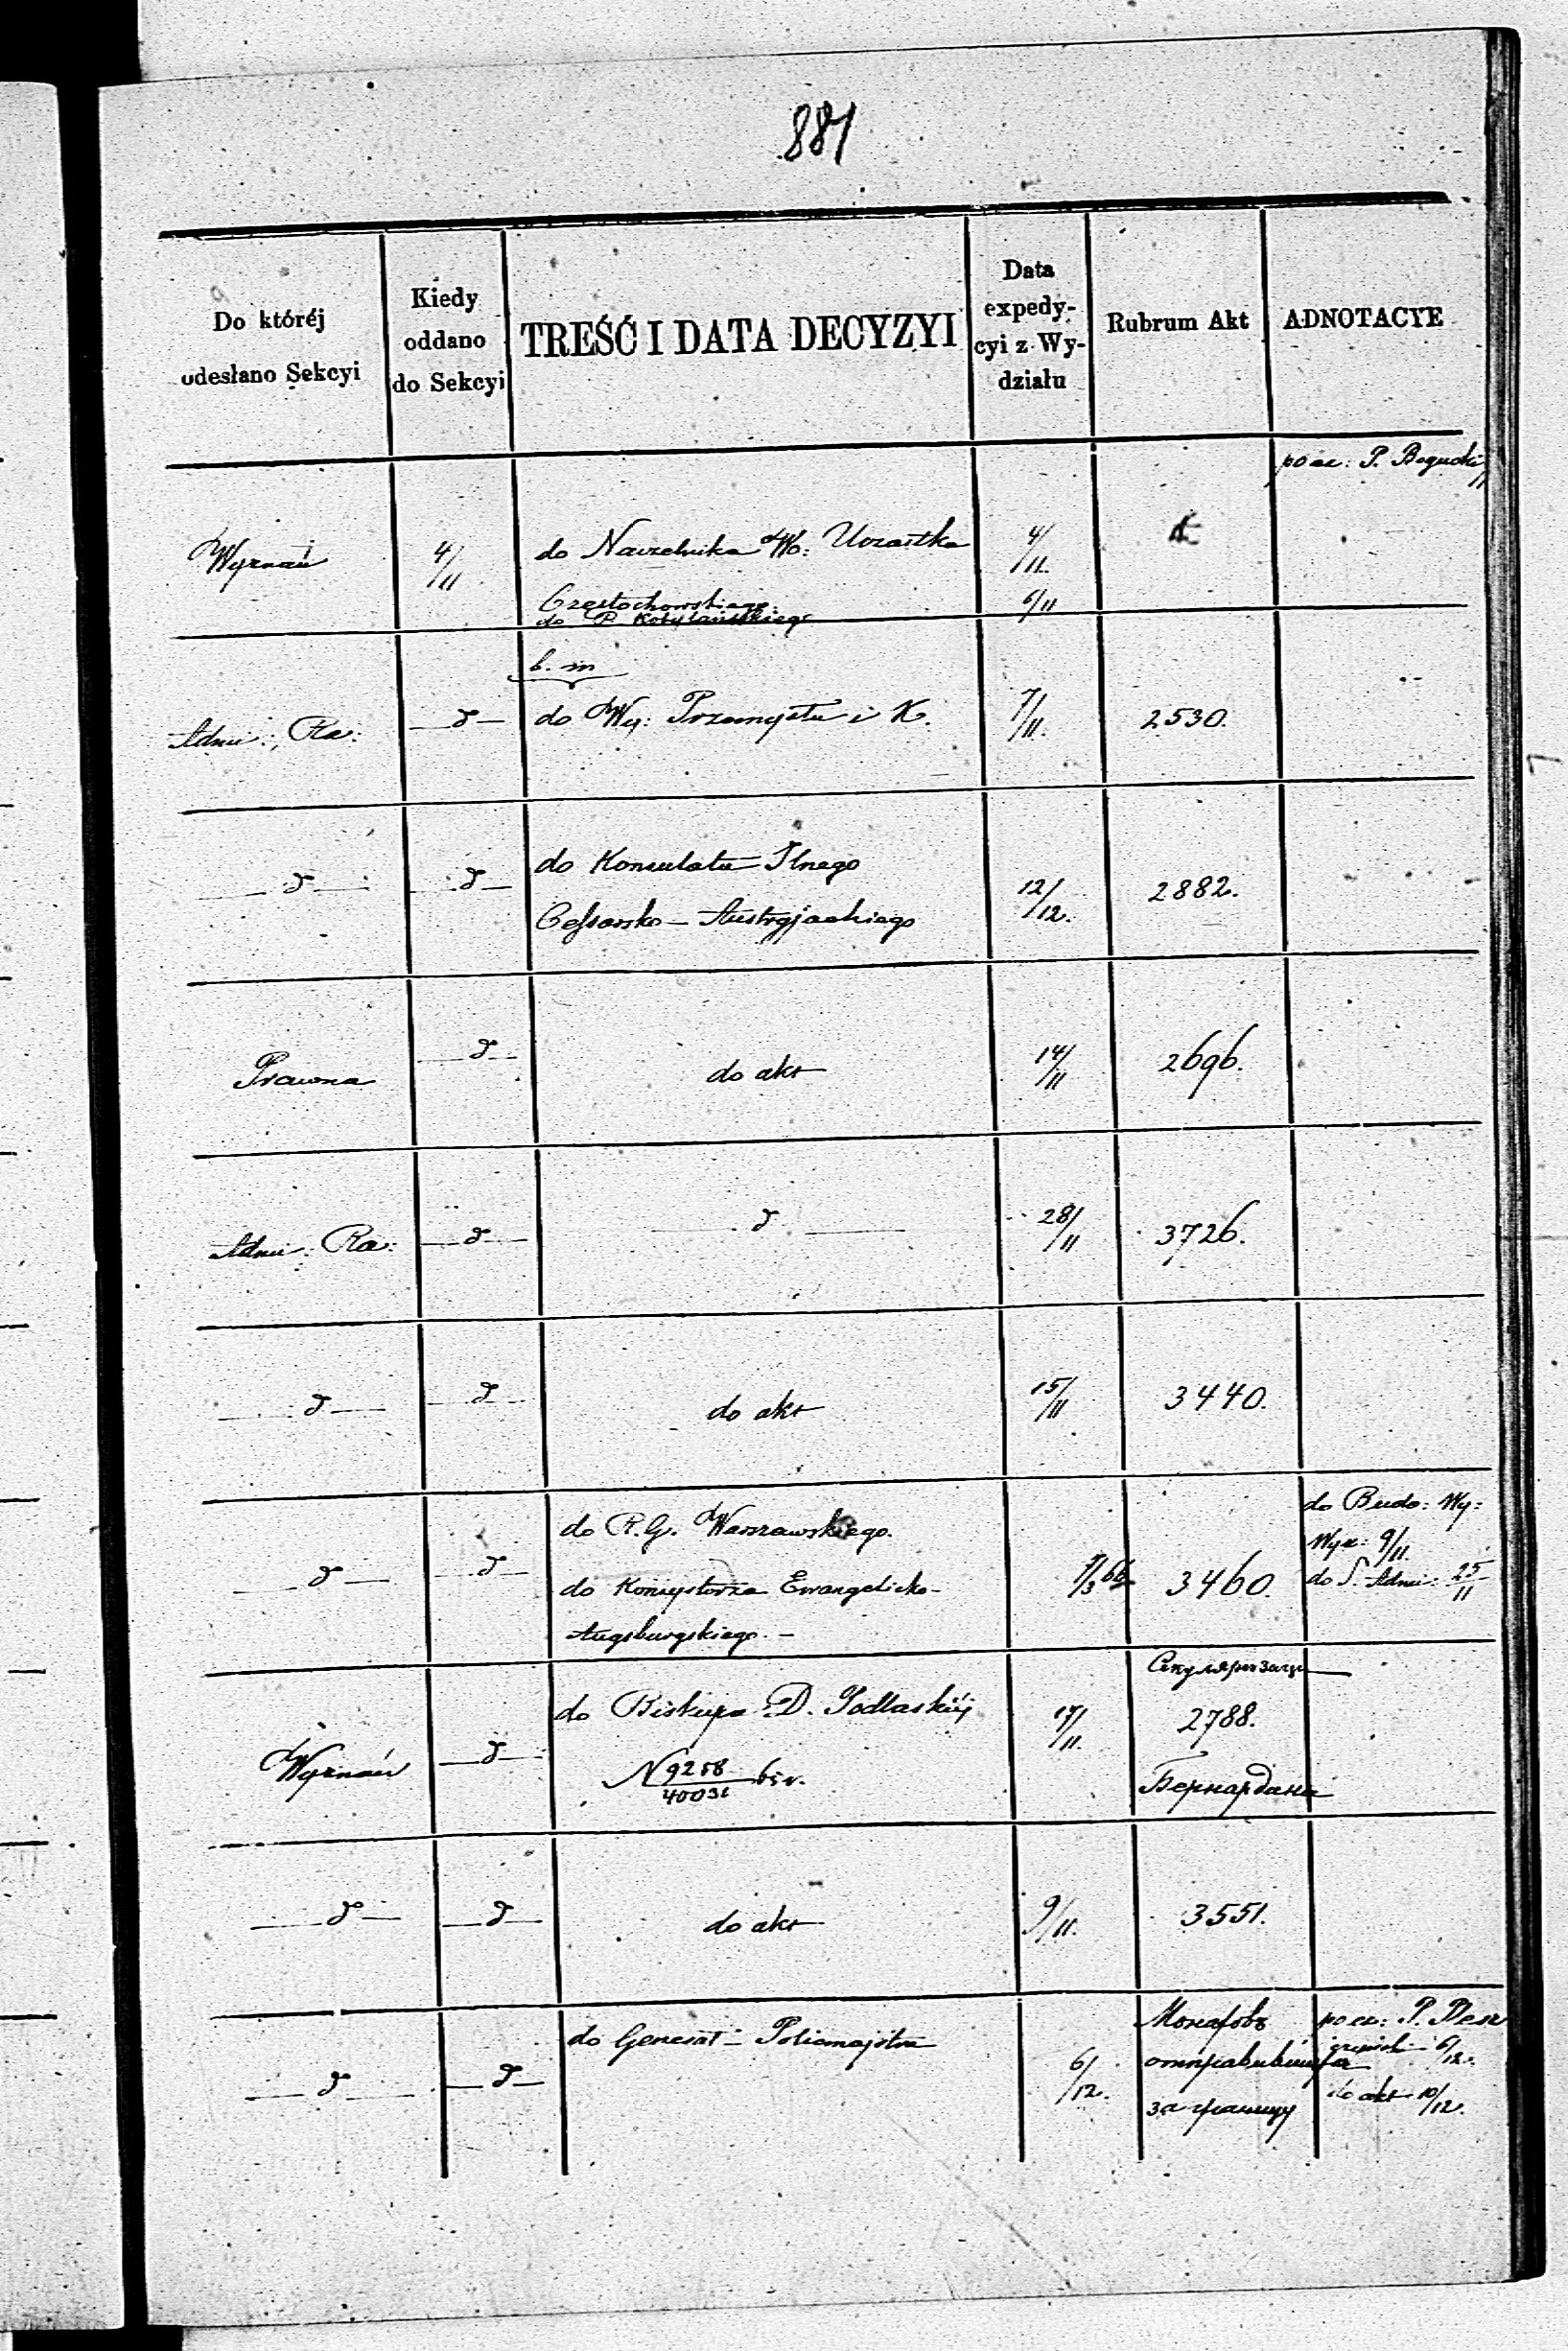 881
Do któréj
odesłano Sekcyi
Kiedy
oddano
do Sekcyi
TREŚĆ I DATA DECYZYI
Data
expedy-
cyi z Wy-
działu
Rubrum Akt
ADNOTACYE
P. Bogucki
Wyznań
4/11
do Naczelnika Wo:
4/11
Częstochowskiego
do P. Kobylańskiego
6/11
b. m
Admi: Ra:
d
do Wy: Przemysłu i K.
7/11
2530.
d
d
do Konsulatu Jlnego
Cessarsko-Austryjackiego
12/12.
2882.
Prawna
d
do akt
14/11
2696.
Admi: Ra:
d
d
28/11
3726.
d
d
do akt
15/11
3440.
d
d
do R.G. Warszawskiego.
do Konsystorza Ewangelicko-
Augsburgskiego. —
3460
do Budo: Wy:
9/11.
do S. Admi: 25/11
Wyznań
d
do Biskupa D. Podlaskiéj
N
17/11.
2788.
Бернардина
d
d
do akt
9/11.
3551.
d
d
do Generał-Policmajstra
6/12.
Монахов
за границу
P.
6/12.
do akt 10/12.